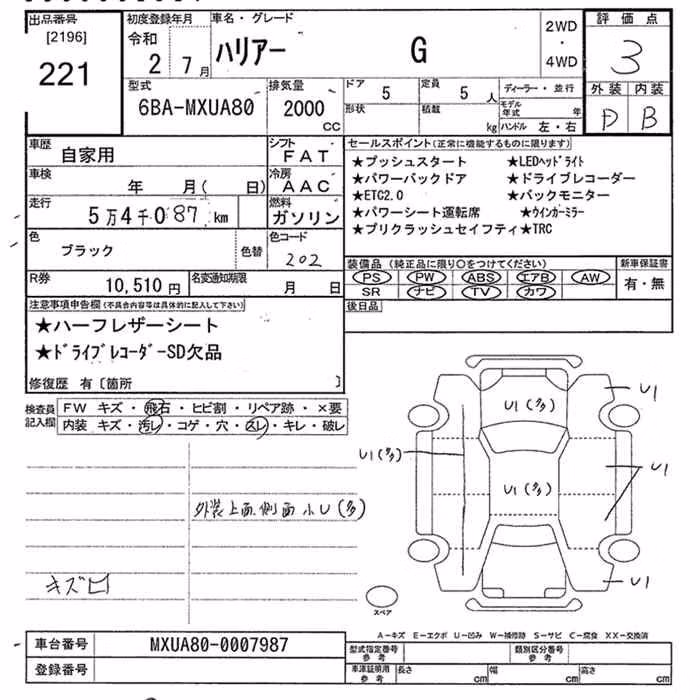 出品番号
[2196]
221
初度登録年月
令和
2 7月
車名・グレード
ハリアー G
2WD
・
4WD
評価点
3
外装 内装
D B
型式
6BA-MXUA80
排気量
2000
CC
ドア 5
定員 5 人
形状
積載 kg
ディーラー・並行
モデル年式 年
ハンドル 左・右
車歴
自家用
シフト
FAT
車検
年 月( 日)
冷房
AAC
走行
5万4千087km
燃料
ガソリン
色
ブラック
色替
色コード
202
R券
10,510円
名変通知期限
月 日
セールスポイント(正常に機能するものに限ります)
★プッシュスタート ★LEDヘッドライト
★パワーバックドア ★ドライブレコーダー
★ETC2.0 ★バックモニター
★パワーシート運転席 ★ウインカーミラー
★プリクラッシュセイフティ★TRC
装備品(純正品に限り○をつけてください)
PS PW ABS エアB AW
SR ナビ TV カワ
新車保証書
有・無
後日品
注意事項申告欄(不具合内容等は具体的に記入して下さい)
★ハーフレザーシート
★ドライブレコーダーSD欠品
修復歴 有〔箇所 〕
検査員
記入欄
FW キズ・飛石・ヒビ割・リペア跡・×要
内装 キズ・汚レ・コゲ・穴・スレ・キレ・破レ
外装上面、側面小U(多)
キズ凹
U1
U1(多)
U1(多)
U1
U1(多)
U1
スペア
A-キズ E-エクボ U-凹み W-補修跡 S-サビ C-腐食 XX-交換済
車台番号 MXUA80-0007987
登録番号
型式指定番号
参考
類別区分番号
参考
車庫証明用
参考
長さ cm
幅 cm
高さ cm